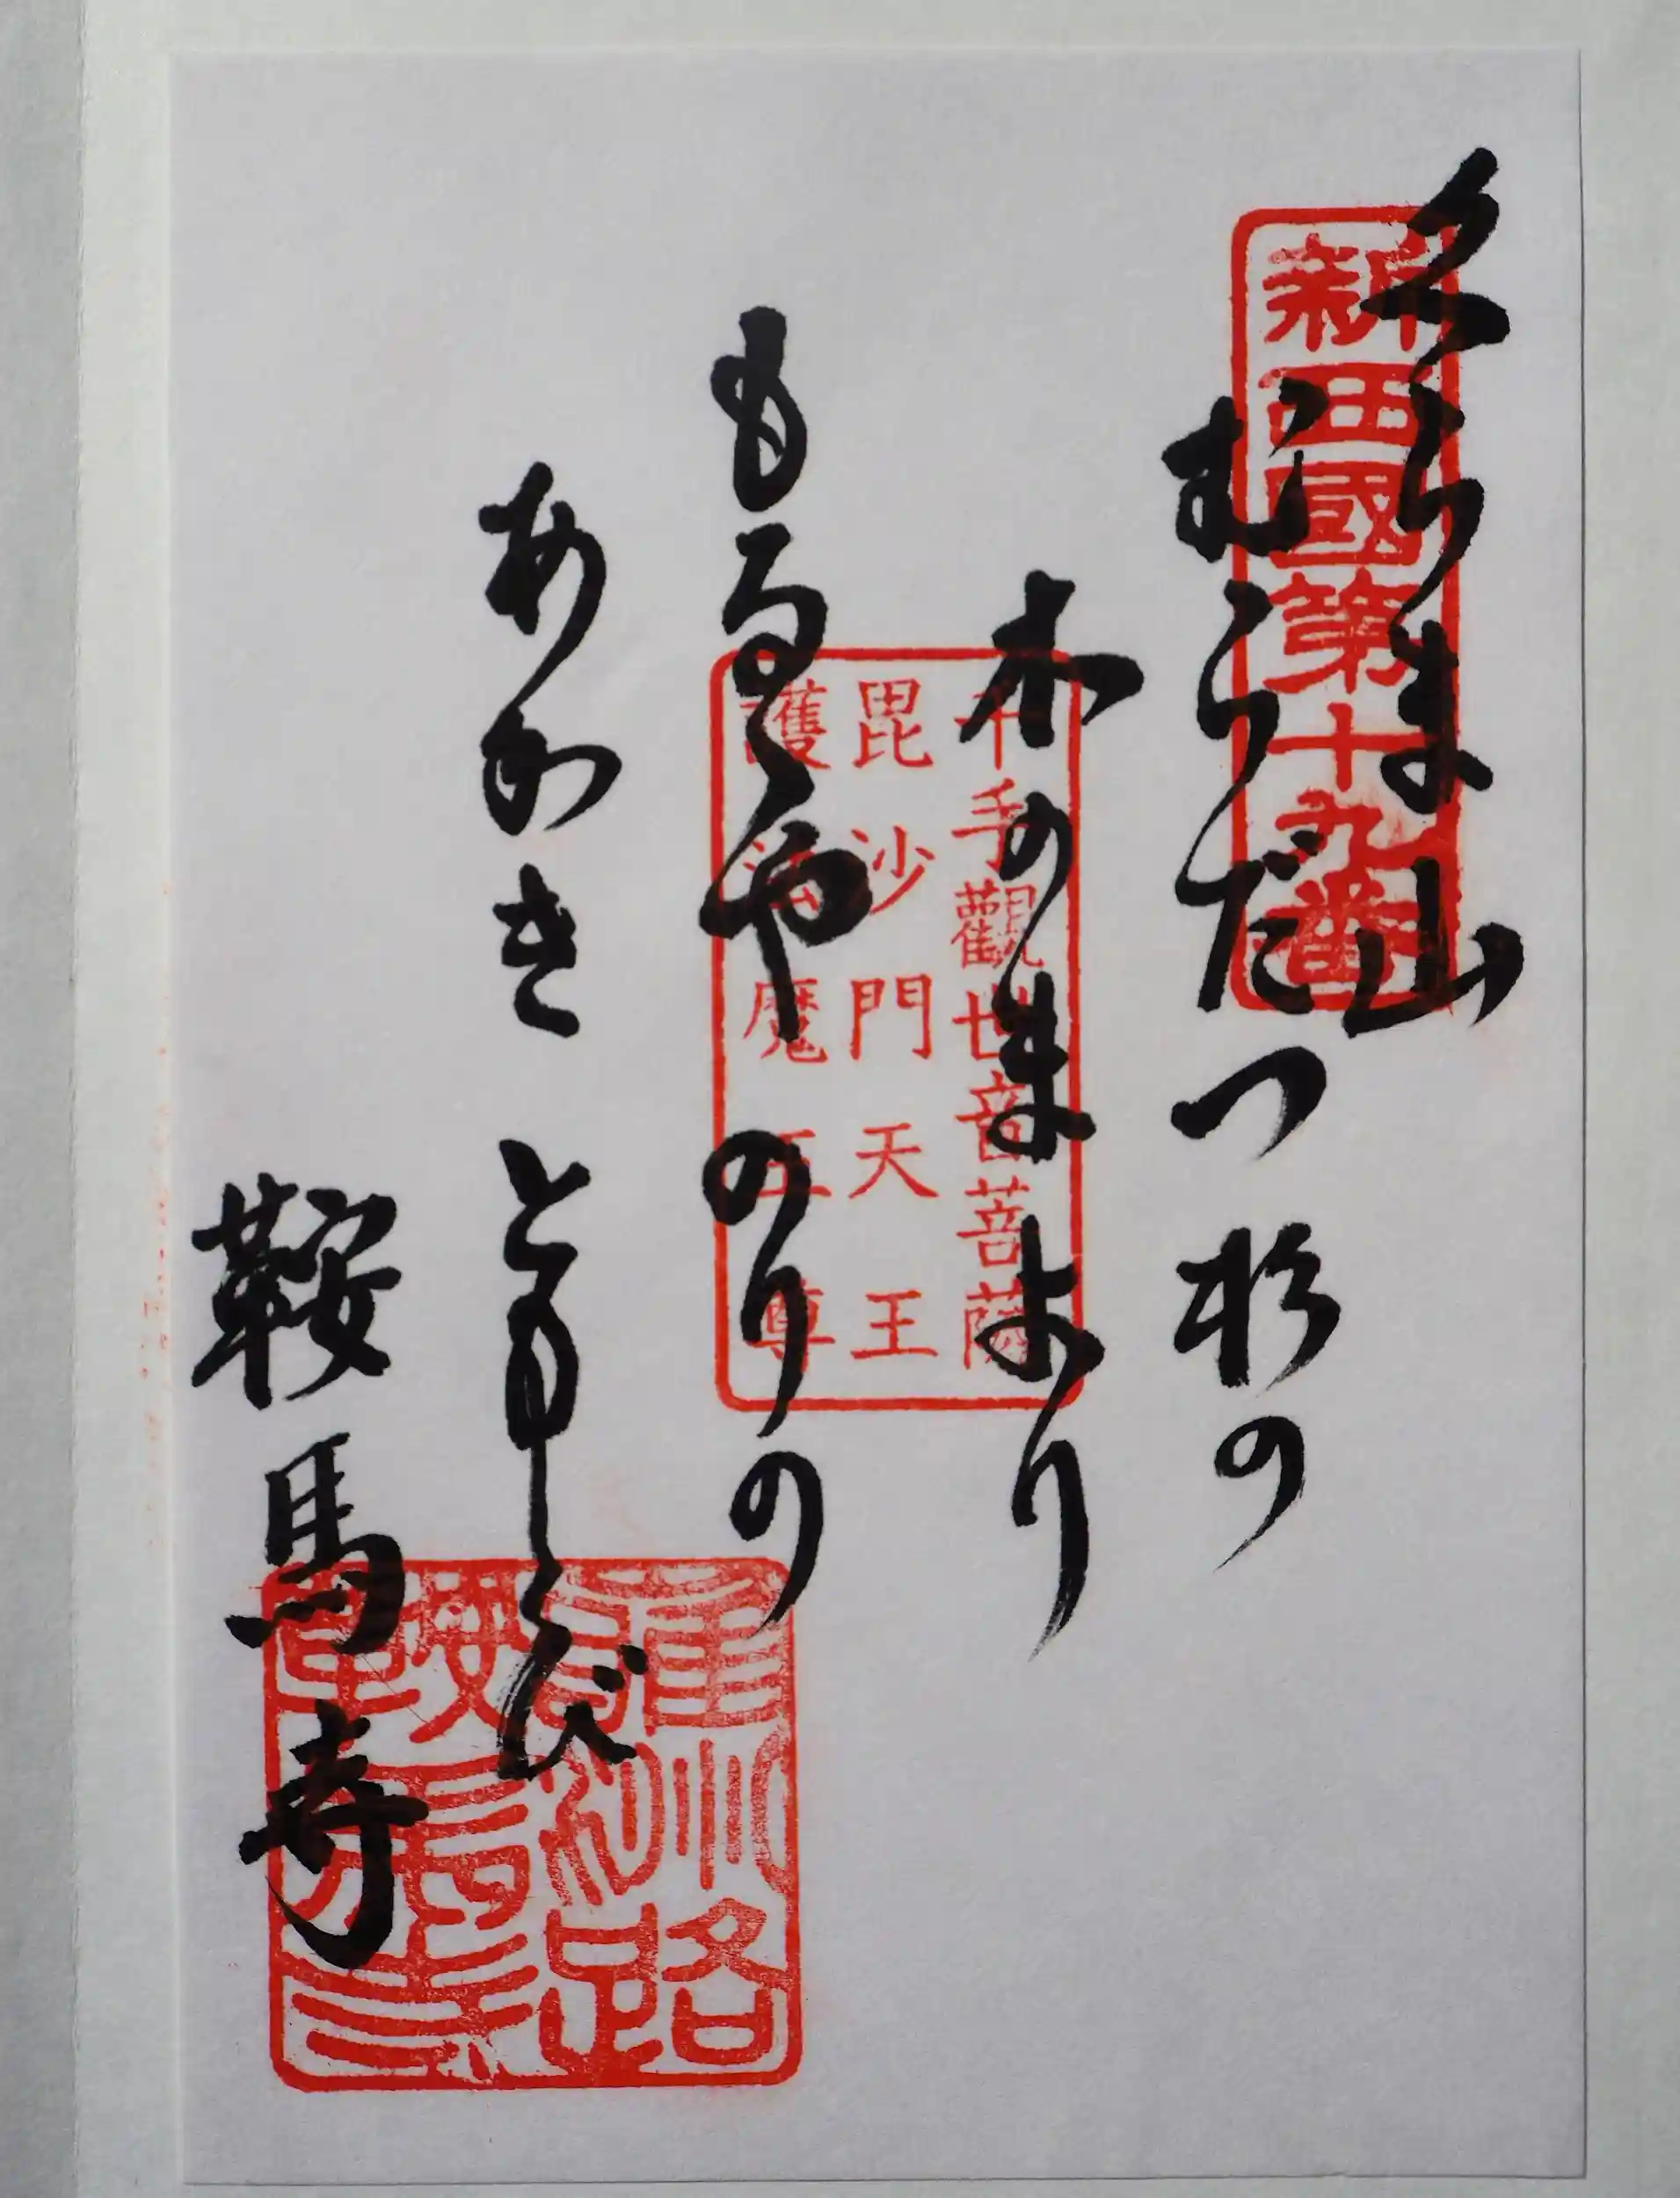 新西國第十九番
くらま山
むらだつ杉の
木のまより
もるゝや のりの
あかき ともしび
鞍馬寺
千手觀世音菩薩
毘沙門天王
護法魔王尊
雍州路
鞍馬寺